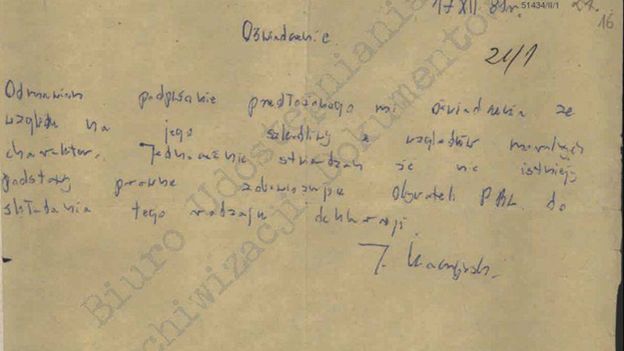 17 XII. 81r. 51434/II/1
16
Oświadczenie
21/1
Odmawiam podpisanie przedłożonego mi oświadczenia ze
względu na jego szkodliwy z względów moralnych
charakter. Jednocześnie stwierdzam że nie istnieją
podstawy prawne zobowiązujące Obywateli PRL do
składania tego rodzaju deklaracji.
J. Kaczyński.
Biuro Udostępniania
Archiwizacji Dokumentów